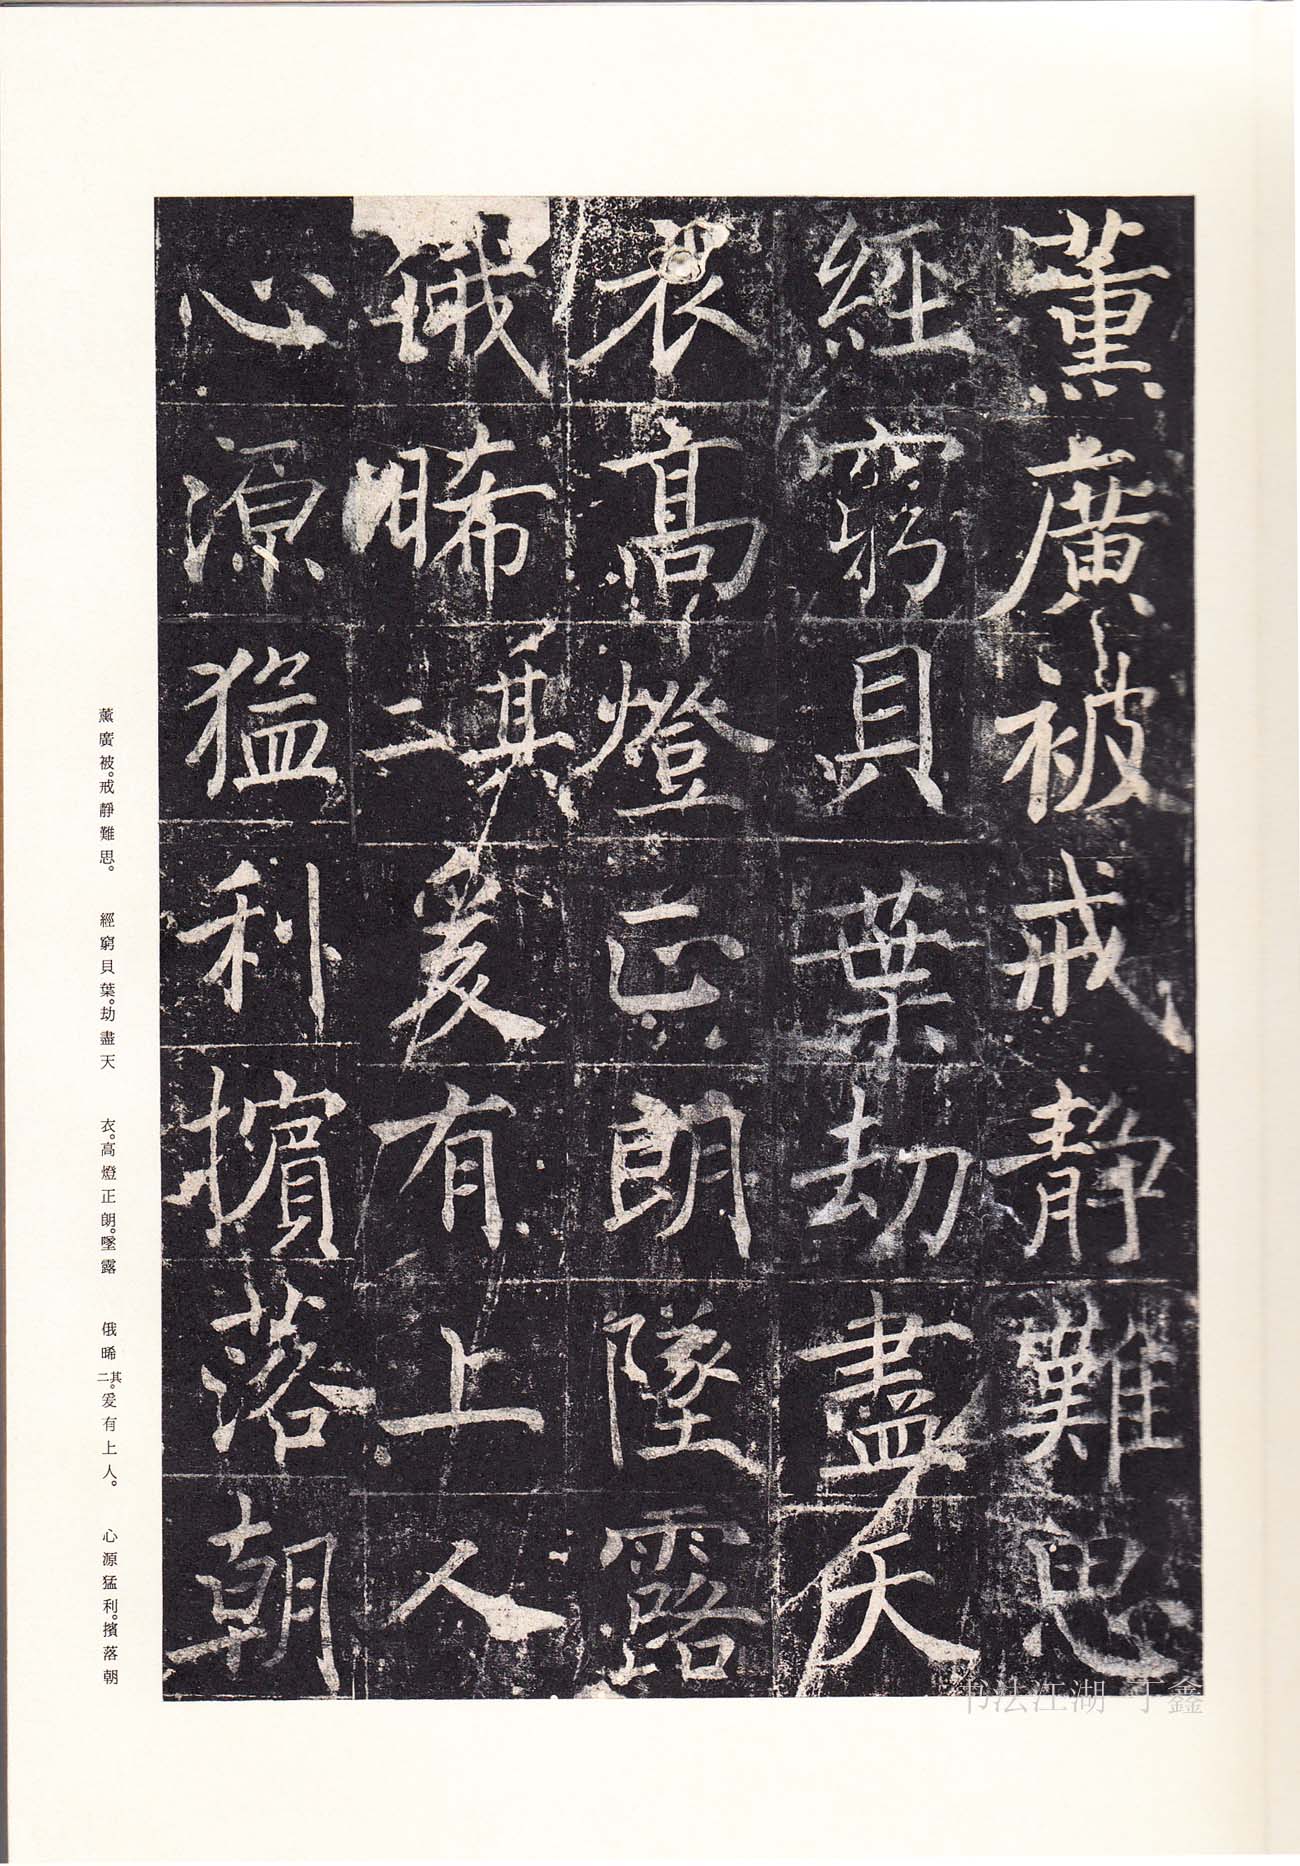 薰廣被戒静難思
經窮貝葉劫盡天
衣髙燈正朗墜露
俄晞其二爰有上人
心源猛利擯落朝
薰廣被。戒静難思。 經窮貝葉。劫盡天 衣。高燈正朗。墜露 俄晞其二。爰有上人。 心源猛利。擯落朝
书法江湖 丁鑫